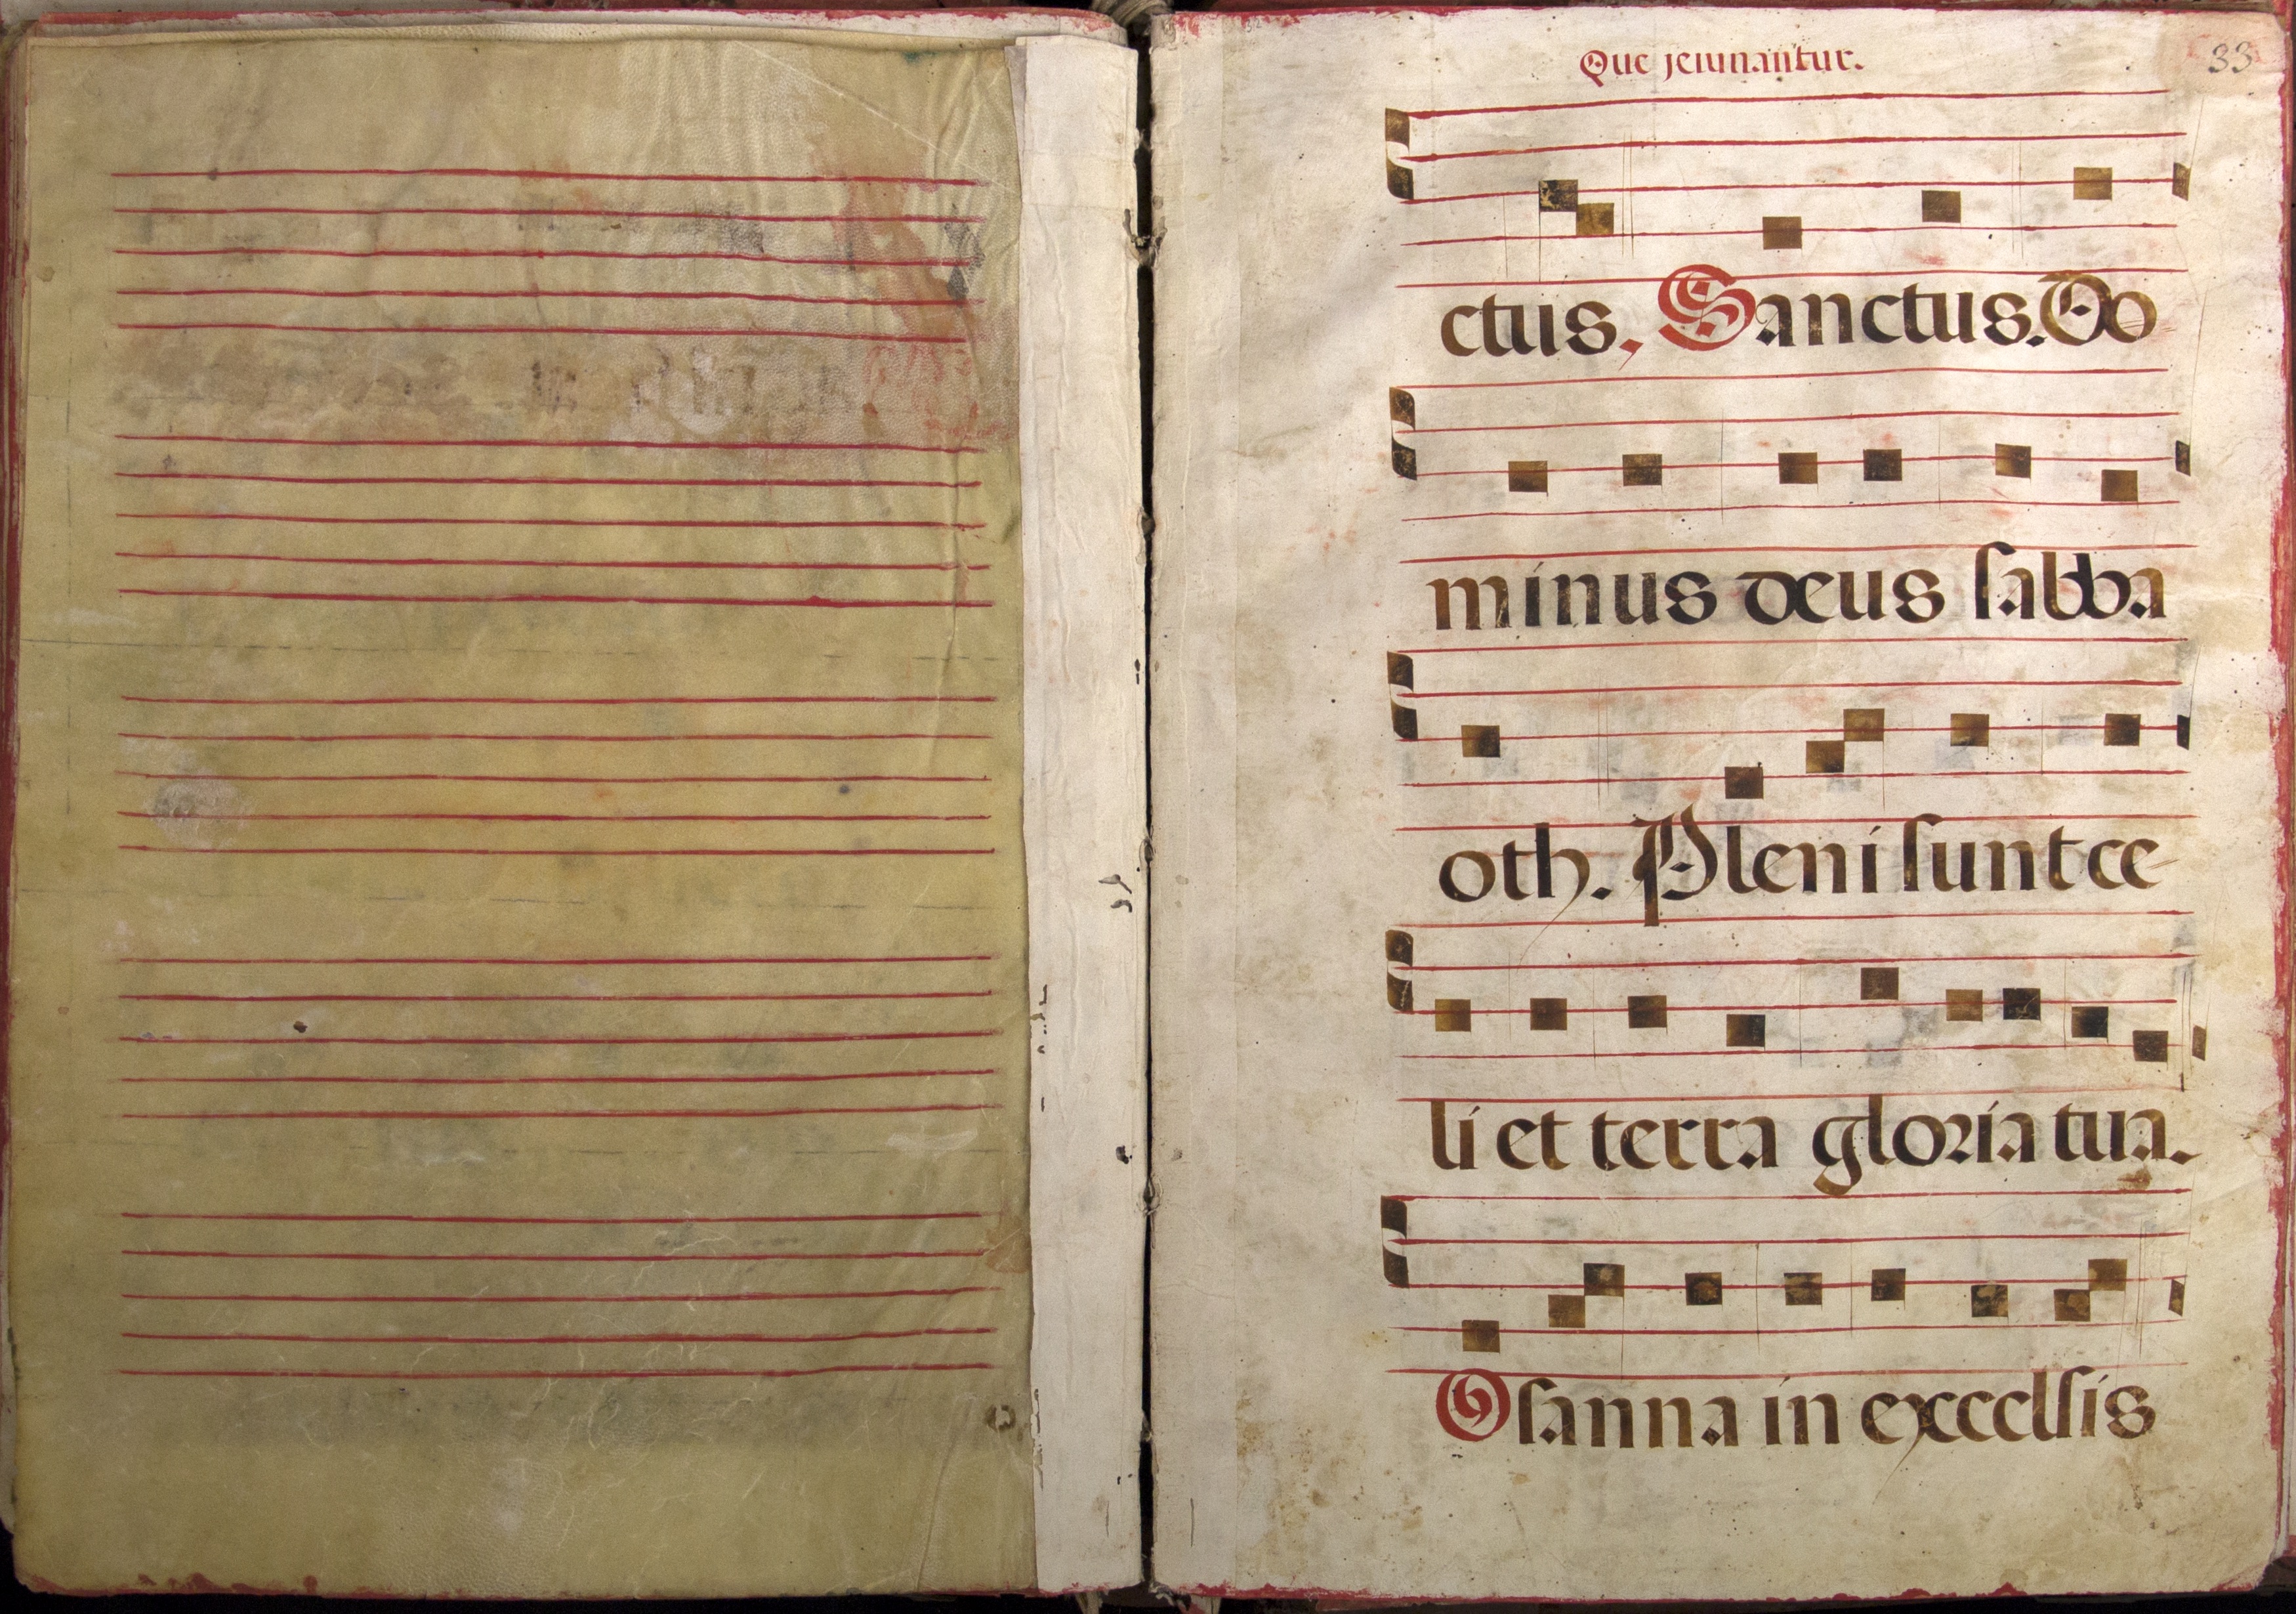 Que jeiunantur.
33
ctus, Sanctus. Do
minus deus ſabba
oth. Pleni ſunt ce
li et terra gloria tua.
Oſanna in excelſis